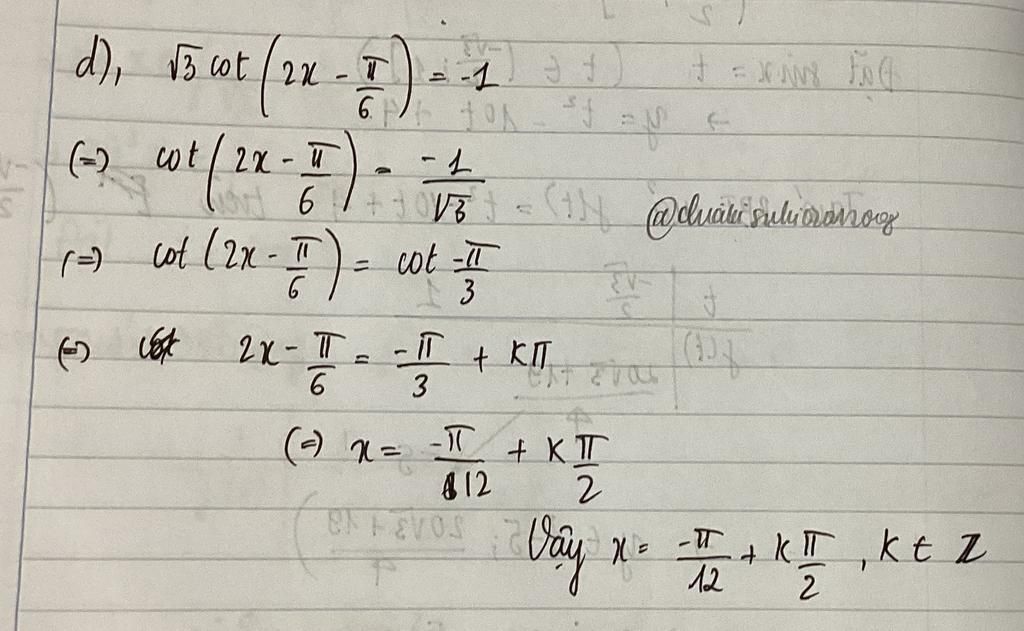 d), √3 cot(2x - π/6) = -1
(=) cot(2x - π/6) = -1/√3
(=) cot(2x - π/6) = cot -π/3
(=) 2x - π/6 = -π/3 + kπ
(=) x = -π/12 + k π/2
Vậy x = -π/12 + k π/2 , k ∈ Z